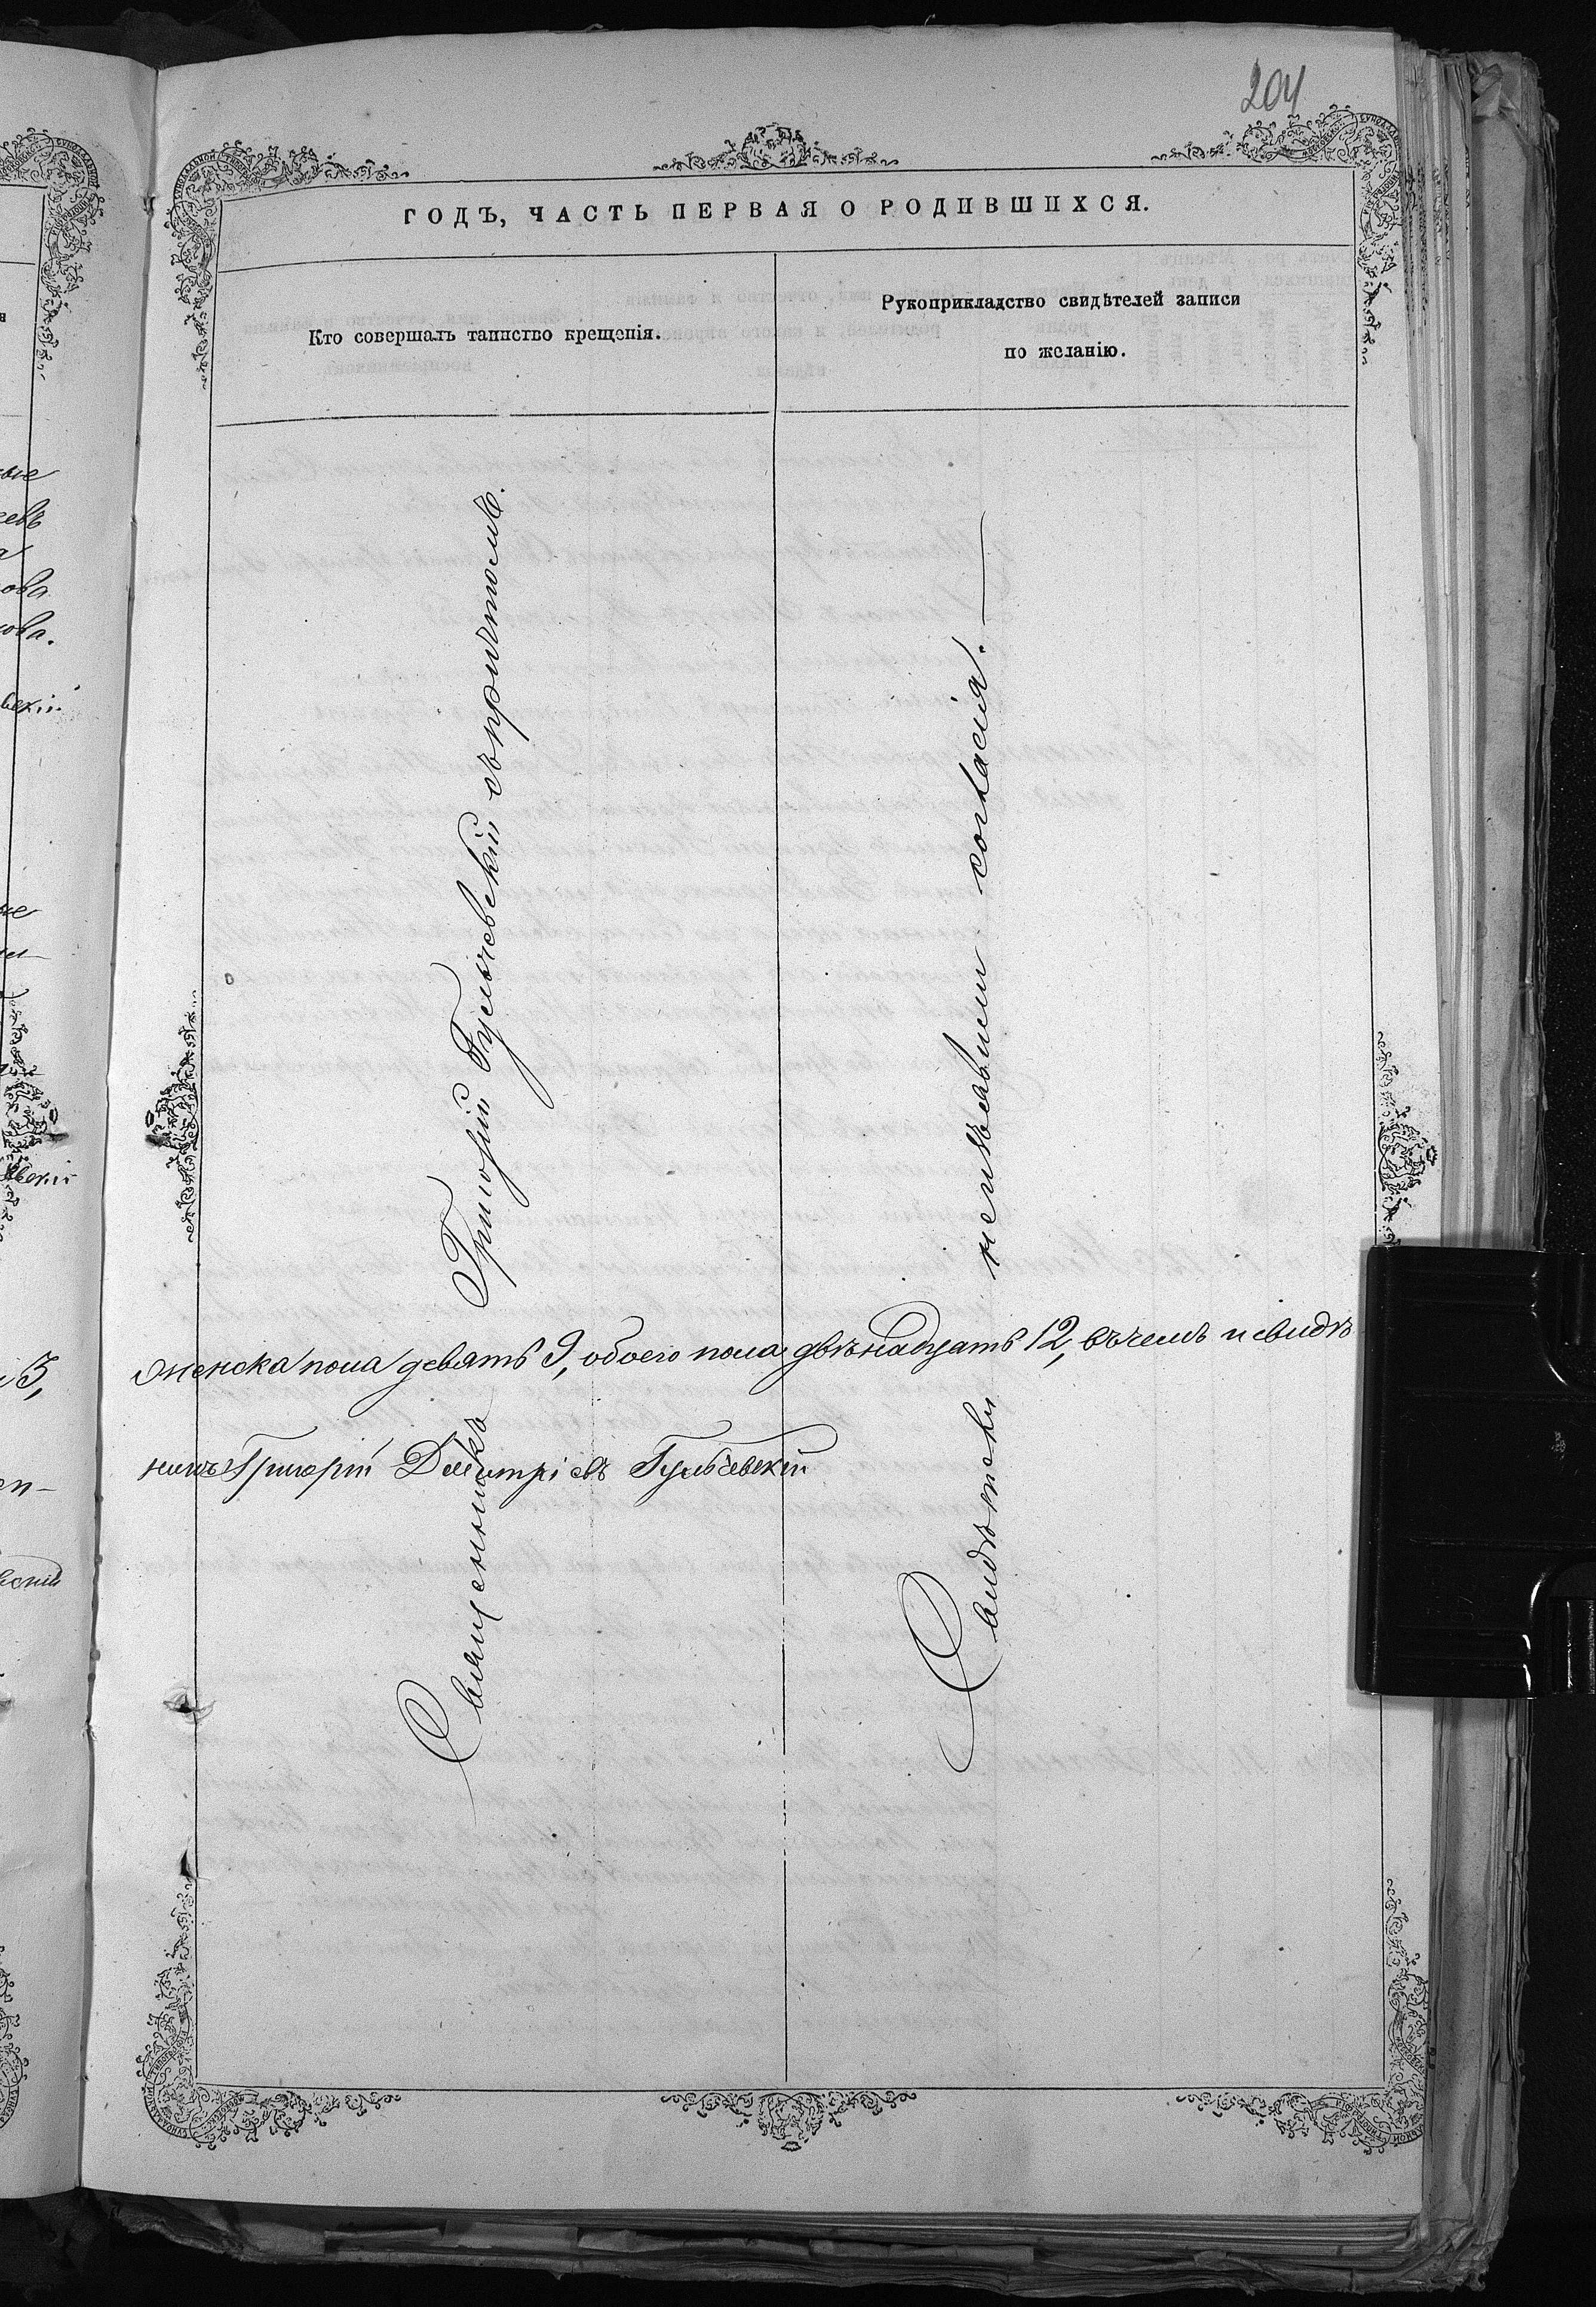 204
ГОДЪ, ЧАСТЬ ПЕРВАЯ О РОДИВШИХСЯ.
Кто совершалъ таинство крещенія.
Рукоприкладство свидѣтелей записи
по желанію.
Священникъ Григорій Гульчевскій съ причтомъ.
Свидѣтели неизъявили согласія.
женска пола девять 9, обоего пола двѣнадцать 12, въ чемъ и свидѣ
Григорій Димитріевъ Гульчевскій